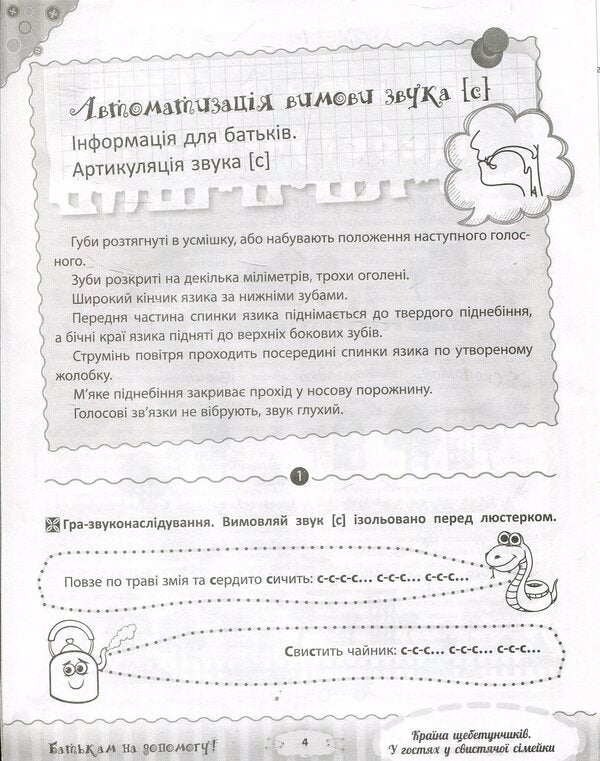 Автоматизація вимови звука [с]
Інформація для батьків.
Артикуляція звука [с]
Губи розтягнуті в усмішку, або набувають положення наступного голос-
ного.
Зуби розкриті на декілька міліметрів, трохи оголені.
Широкий кінчик язика за нижніми зубами.
Передня частина спинки язика піднімається до твердого піднебіння,
а бічні краї язика підняті до верхніх бокових зубів.
Струмінь повітря проходить посередині спинки язика по утвореному
жолобку.
М'яке піднебіння закриває прохід у носову порожнину.
Голосові зв'язки не вібрують, звук глухий.
1
Гра-звуконаслідування. Вимовляй звук [с] ізольовано перед люстерком.
Повзе по траві змія та сердито сичить: с-с-с-с... с-с-с... с-с-с...
Свистить чайник: с-с-с... с-с-с... с-с-с...
Батькам на допомогу!
4
Країна щебетунчиків.
У гостях у свистячої сімейки